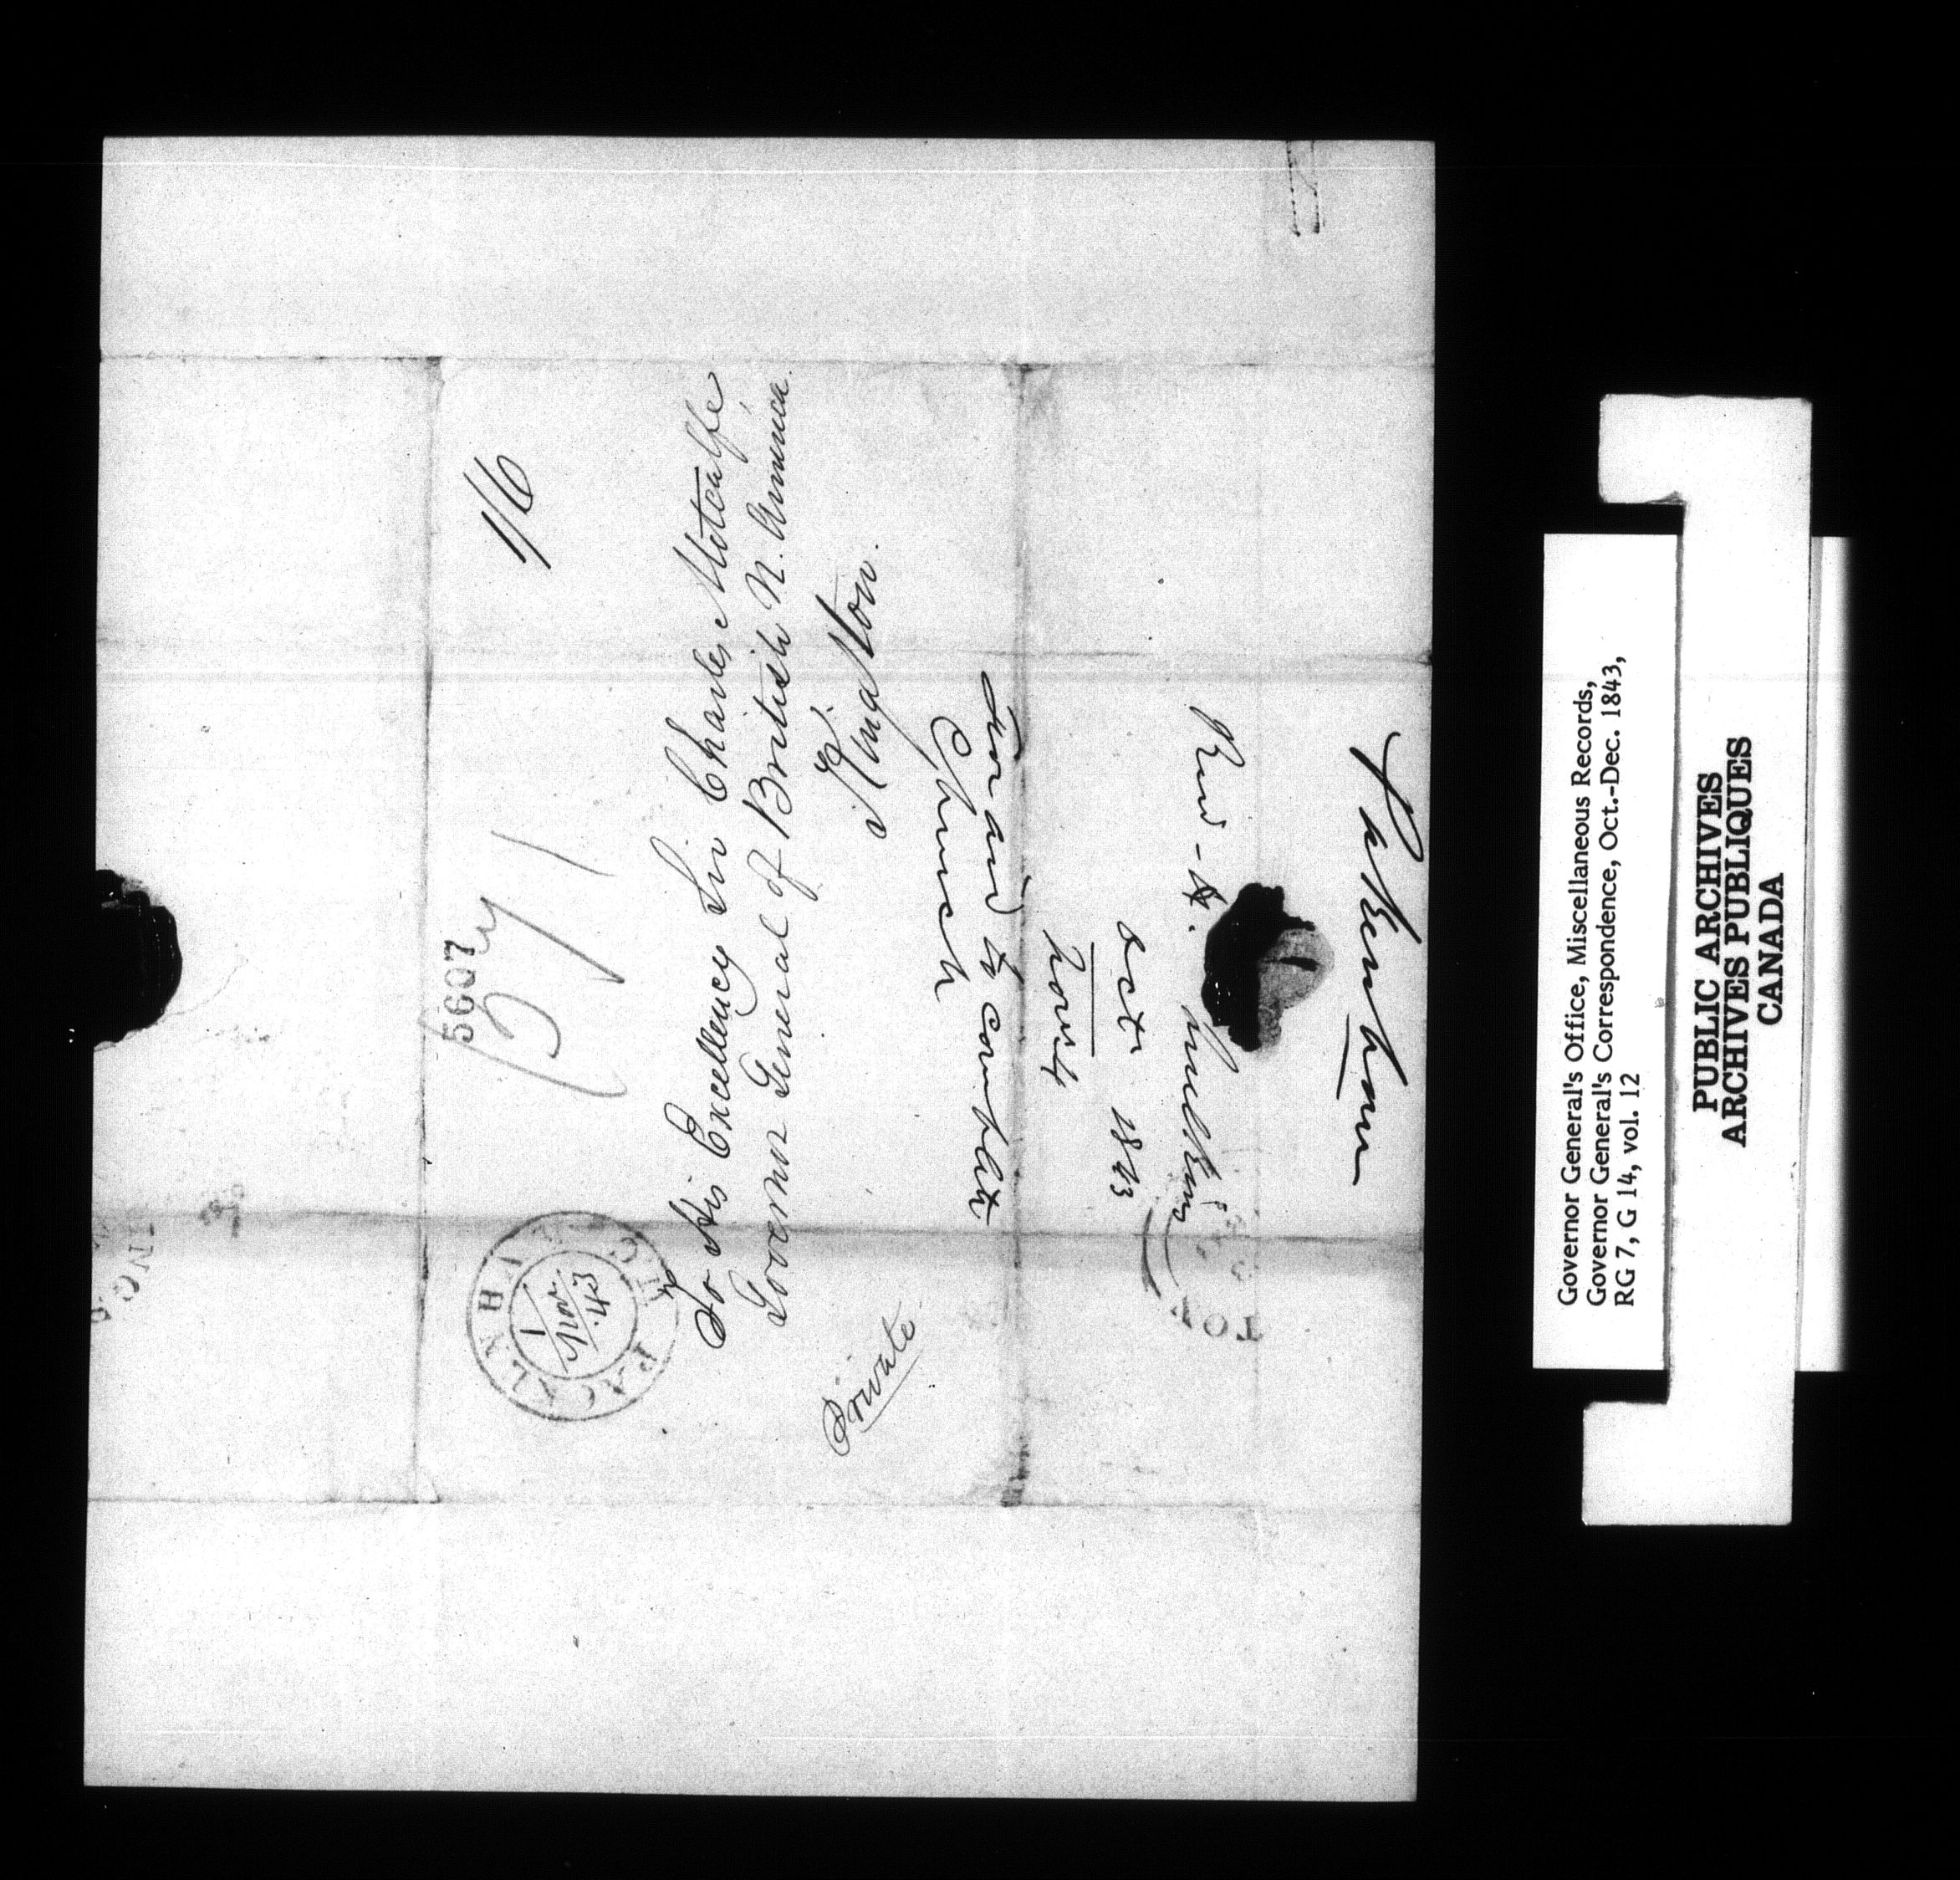 1/6
5607
PACKENHAM U.C.
1 Nov 43
To His Excellency Sir Charles Metcalfe,
Governor General of British N. America.
&c.
Kingston.
Private
Pakenham
Revd A.
Octr 1843
Novr 4
to complete
Church
Governor General's Office, Miscellaneous Records,
Governor General's Correspondence, Oct.-Dec. 1843,
RG 7, G 14, vol. 12
PUBLIC ARCHIVES
ARCHIVES PUBLIQUES
CANADA